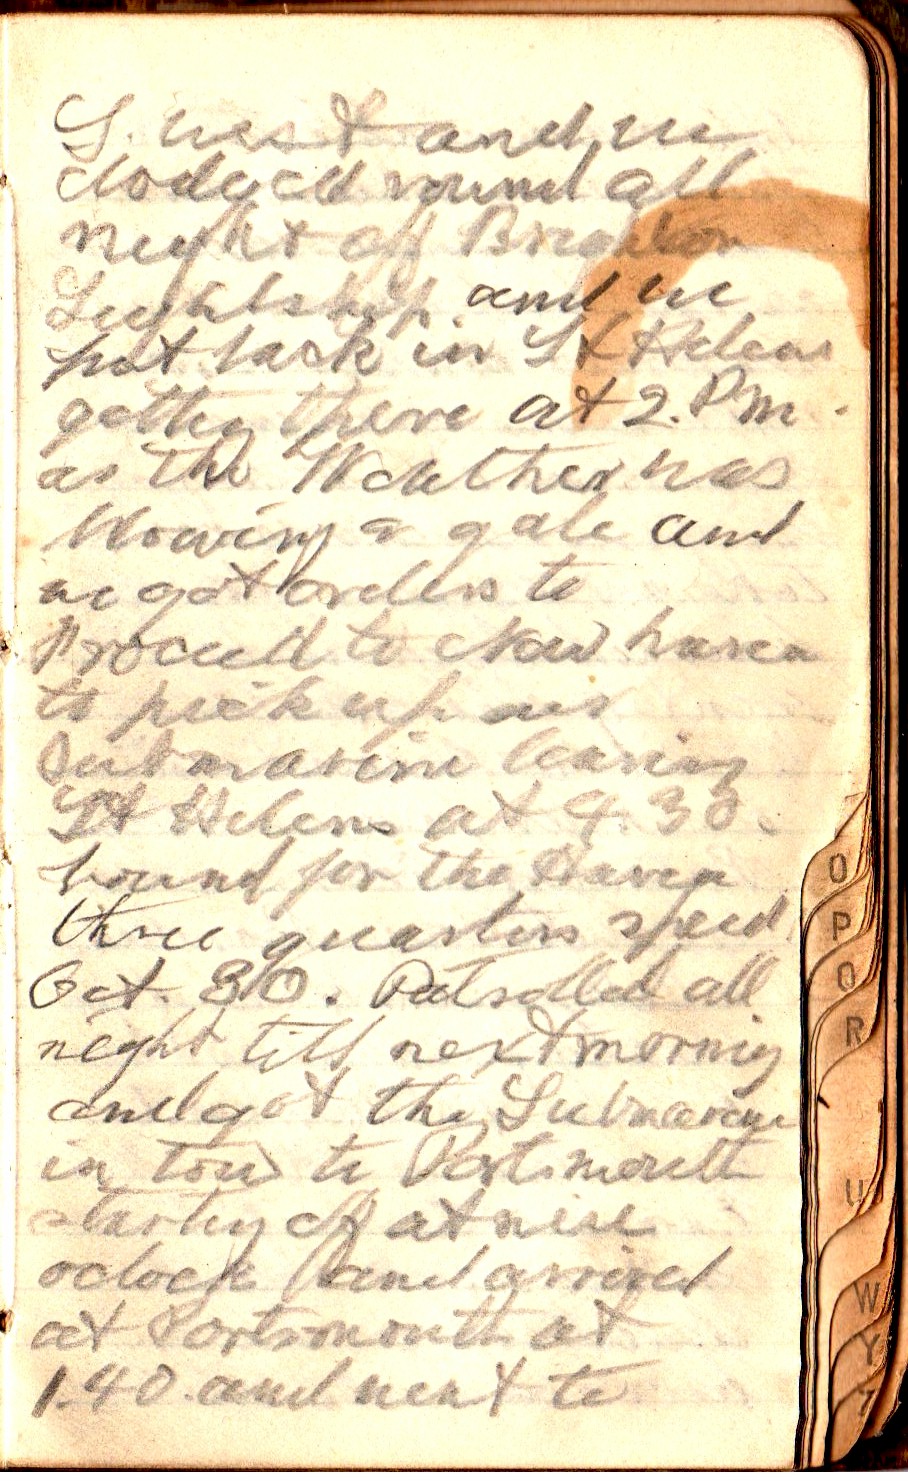 S. West and we
dodged round all
night off
Lightship. and we
put back in St Helens
getting there at 2. P m.
as the Weather was
blowing a gale and
we got orders to
Proceed to New haven
to pick up
Submarine leaving
St Helens at 4.30.
bound for the Haven
three quarters speed.
Oct. 30. Patrolled all
night till next morning
and got the Submarine
in tow to Portsmouth
starting off at nine
oclock and arrived
at Portsmouth at
1.40. and went to
O
P
Q
R
U
W
Y